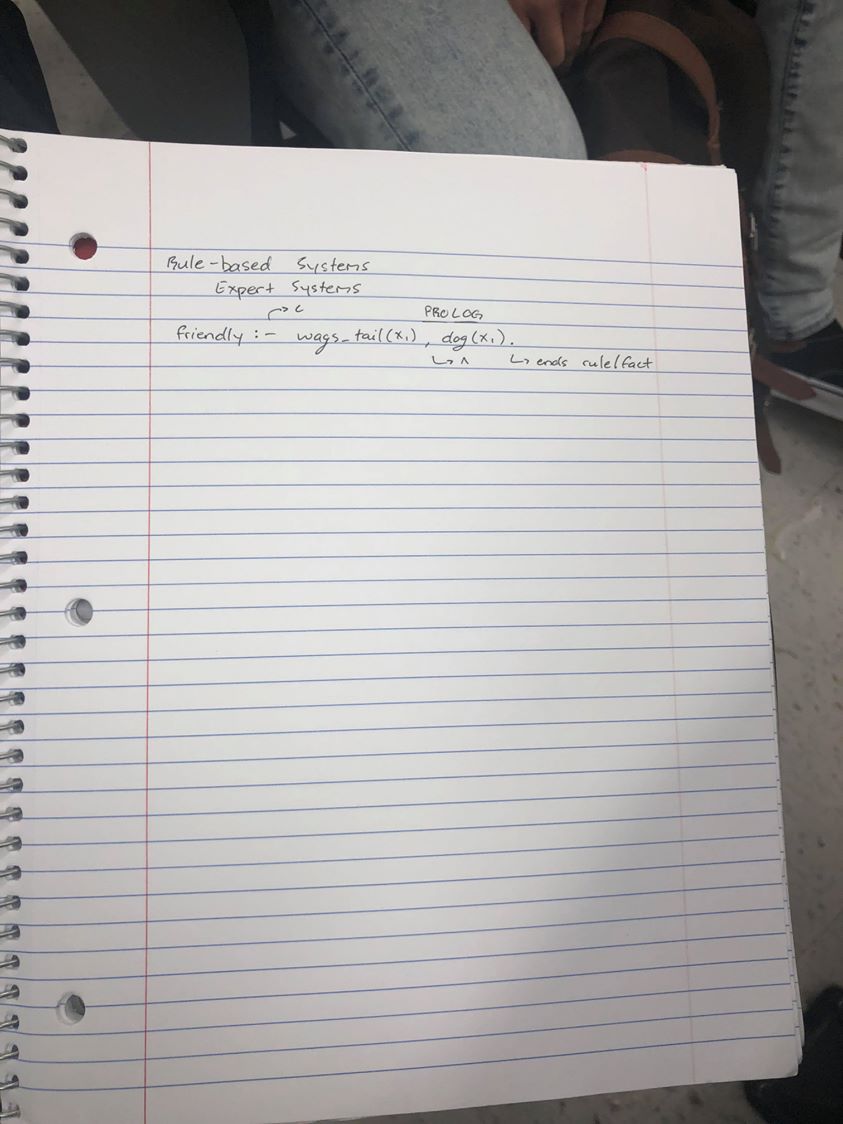 Rule-based Systems
Expert Systems
↱ c PROLOG
friendly :- wags_tail(x₁), dog(x₁).
↳ ∧ ↳ ends rule/fact